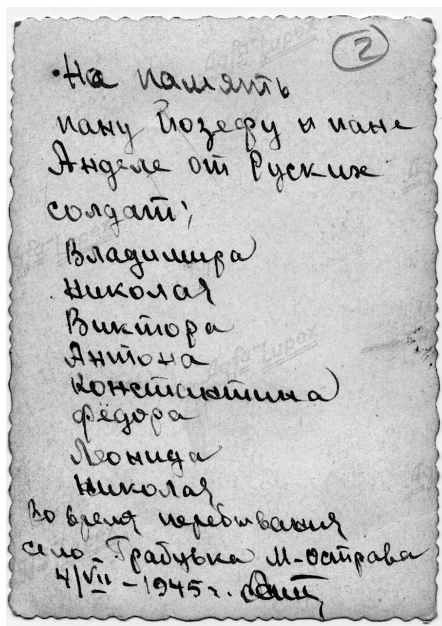 2
На память
пану Йозефу и пане
Анделе от Руских
солдат;
Владимира
Николая
Виктора
Антона
Константина
Фёдора
Леонида
Николая
Во время перебывания
село-Грабувка М-Острава
4/VII-1945г.
Agfa-Lupex
Agfa-Lupex